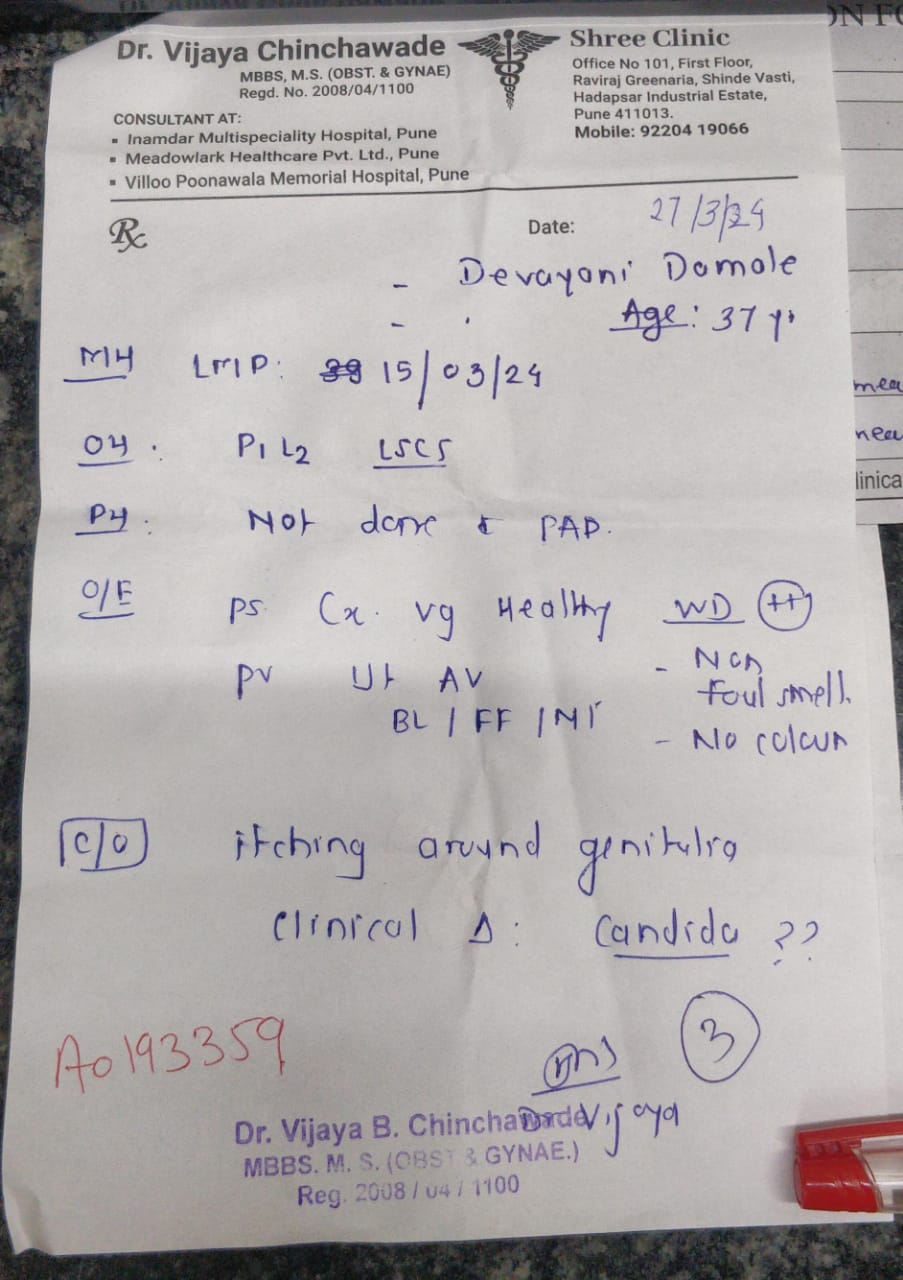 Dr. Vijaya Chinchawade
MBBS, M.S. (OBST. & GYNAE)
Regd. No. 2008/04/1100
CONSULTANT AT:
▪ Inamdar Multispeciality Hospital, Pune
▪ Meadowlark Healthcare Pvt. Ltd., Pune
▪ Villoo Poonawala Memorial Hospital, Pune
Shree Clinic
Office No 101, First Floor,
Raviraj Greenaria, Shinde Vasti,
Hadapsar Industrial Estate,
Pune 411013.
Mobile: 92204 19066
Rx
Date: 27/3/24
- Devayani Domole
Age: 37 yr
M/H LMP: 15/03/24
O4. P1 L2 LSCS
P4. Not done PAP.
O/E PS Cx. vg Healthy WD (++)
- Non
foul smell.
PV Ut AV
BL / FF / NT
- No colour
C/O itching around genitalia
Clinical Δ: Candida ??
A0193359
3
Dr Vijaya
Dr. Vijaya B. Chinchawade
MBBS. M. S. (OBST & GYNAE.)
Reg. 2008 / 04 / 1100